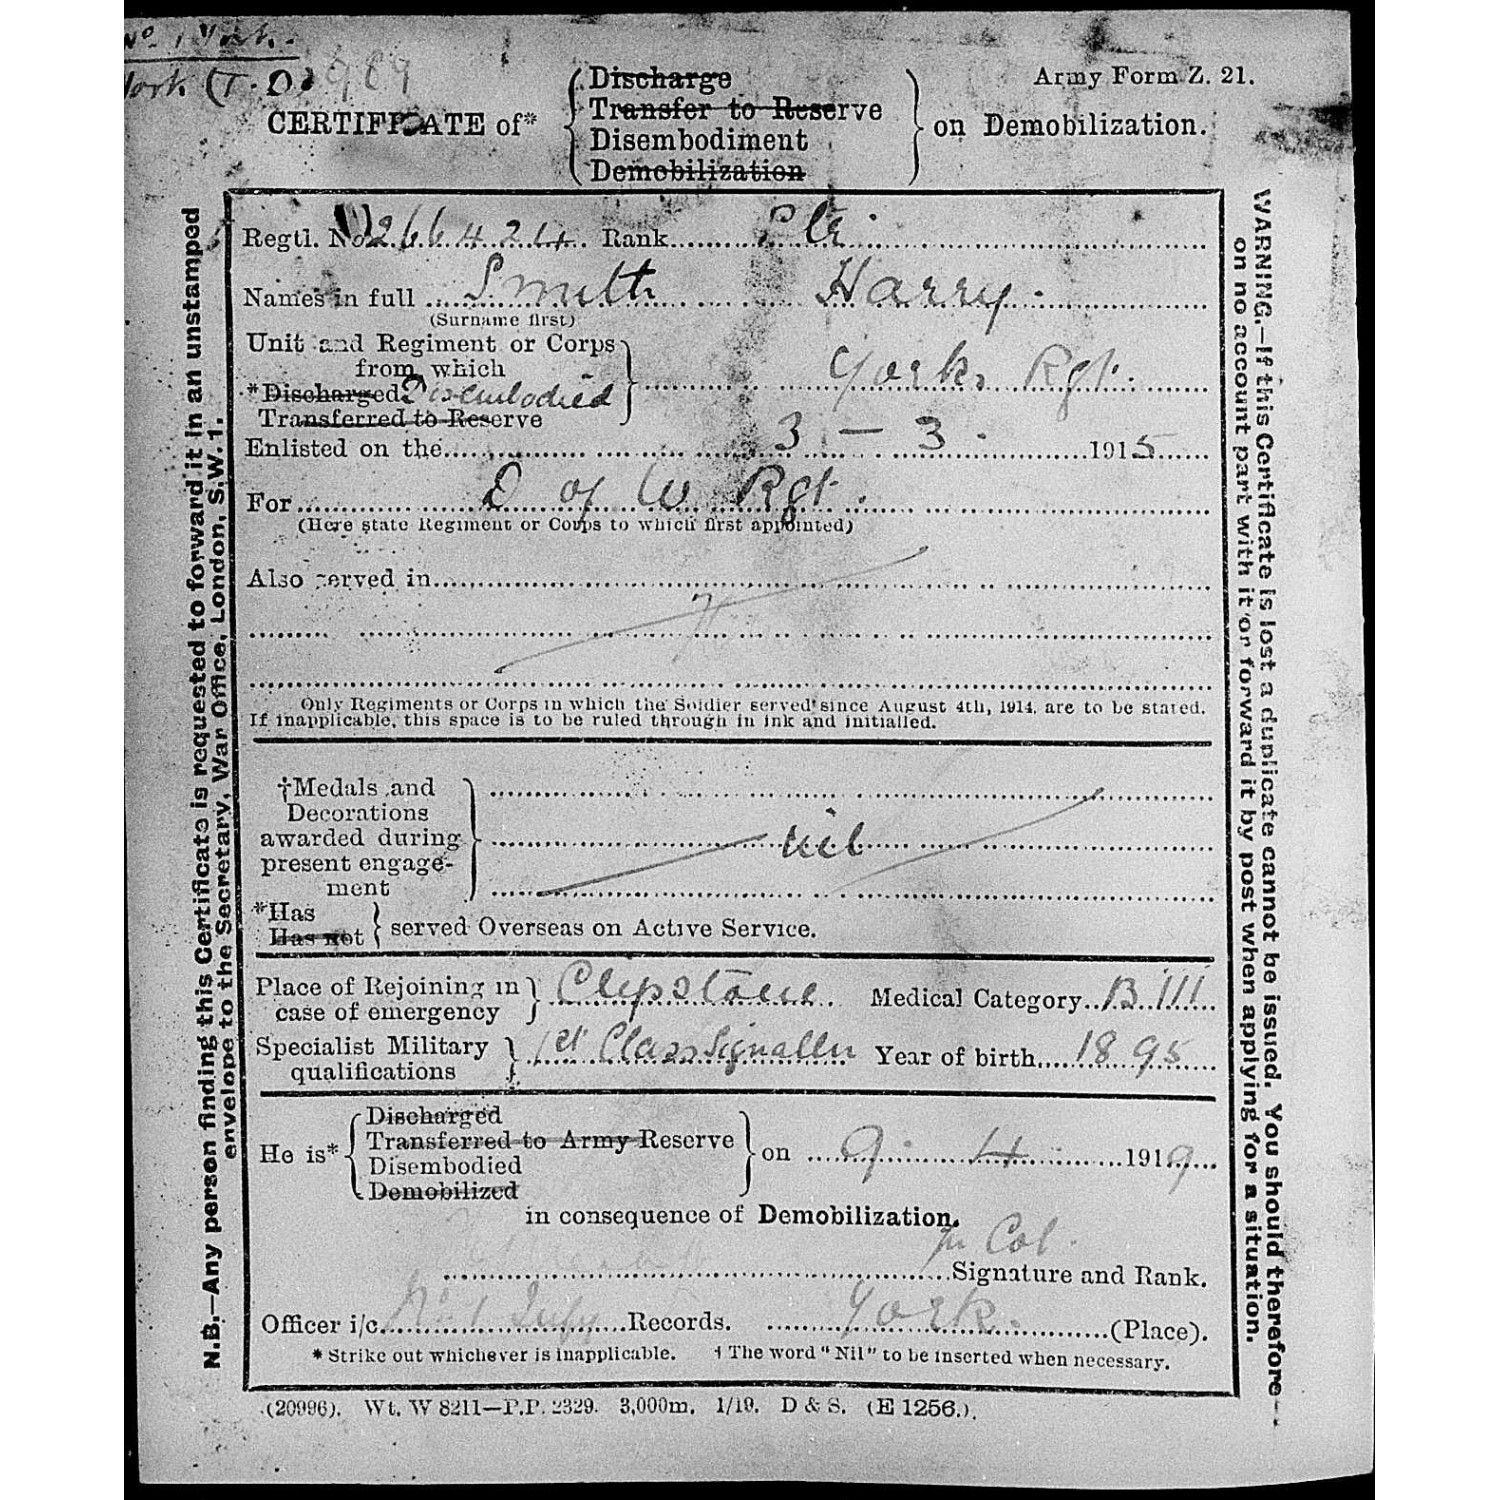 No. 1 York.
York (T.O) 989
Army Form Z. 21.
CERTIFICATE of* { Discharge
Transfer to Reserve
Disembodiment
Demobilization } on Demobilization.
Regtl. No. 266424. Rank Pte.
Names in full Smith Harry.
(Surname first)
Unit and Regiment or Corps
from which
*Discharged Disembodied
Transferred to Reserve } York. Rgt.
Enlisted on the 3 - 3. 1915
For D of W Rgt.
(Here state Regiment or Corps to which first appointed)
Also served in
Only Regiments or Corps in which the Soldier served since August 4th, 1914, are to be stated.
If inapplicable, this space is to be ruled through in ink and initialled.
†Medals and
Decorations
awarded during
present engage-
ment } nil
*Has
Has not } served Overseas on Active Service.
Place of Rejoining in
case of emergency } Clipstone. Medical Category B III
Specialist Military
qualifications } 1st Class Signaller Year of birth 1895
He is* { Discharged
Transferred to Army Reserve
Disembodied
Demobilized } on 9. 4. 1919
in consequence of Demobilization.
Col.
Signature and Rank.
Officer i/c No 1 Infy Records. York. (Place).
* Strike out whichever is inapplicable. † The word "Nil" to be inserted when necessary.
(20996). Wt. W 8211—P.P. 2329. 3,000m. 1/19. D & S. (E 1256.).
N.B.—Any person finding this Certificate is requested to forward it in an unstamped
envelope to the Secretary, War Office, London, S.W. 1.
WARNING.—If this Certificate is lost a duplicate cannot be issued. You should therefore
on no account part with it or forward it by post when applying for a situation.